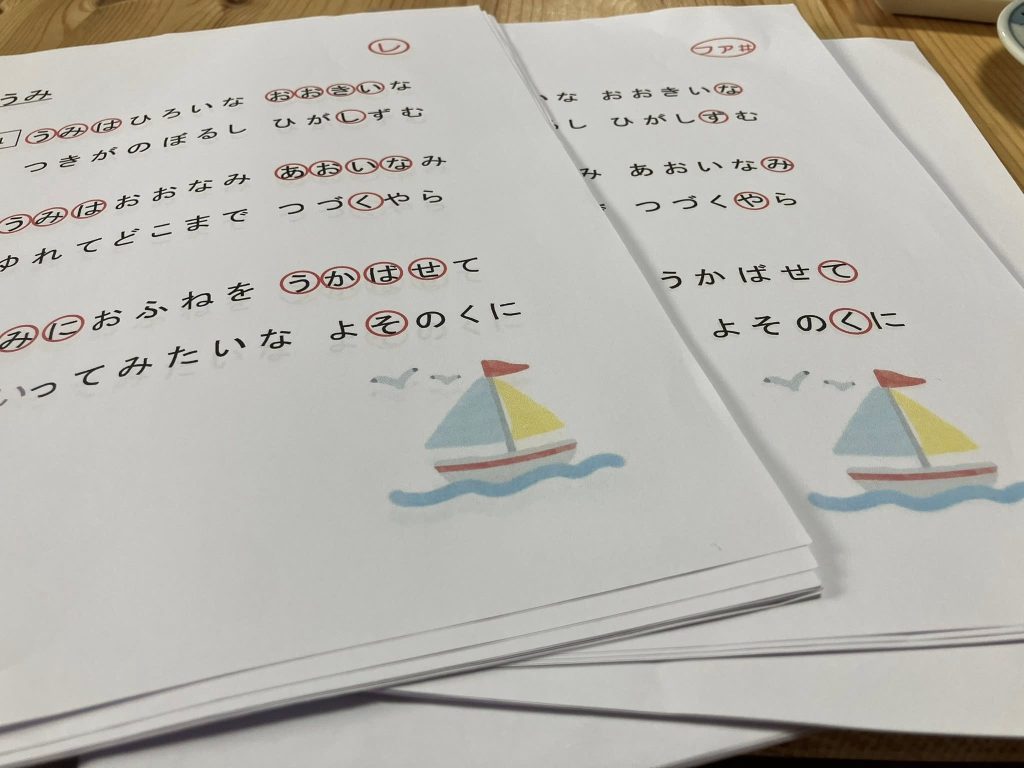 レ
うみ
1 うみはひろいな おおきいな
つきがのぼるし ひがしずむ
うみはおおなみ あおいなみ
ゆれてどこまで つづくやら
みにおふねを うかばせて
いってみたいな よそのくに
ファ#
いな おおきいな
るし ひがしずむ
み あおいなみ
つづくやら
うかばせて
よそのくに